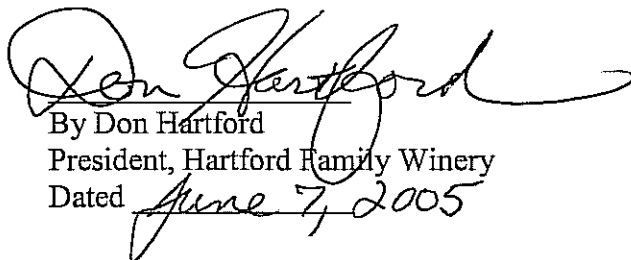 Don Hartford
By Don Hartford
President, Hartford Family Winery
Dated June 7, 2005